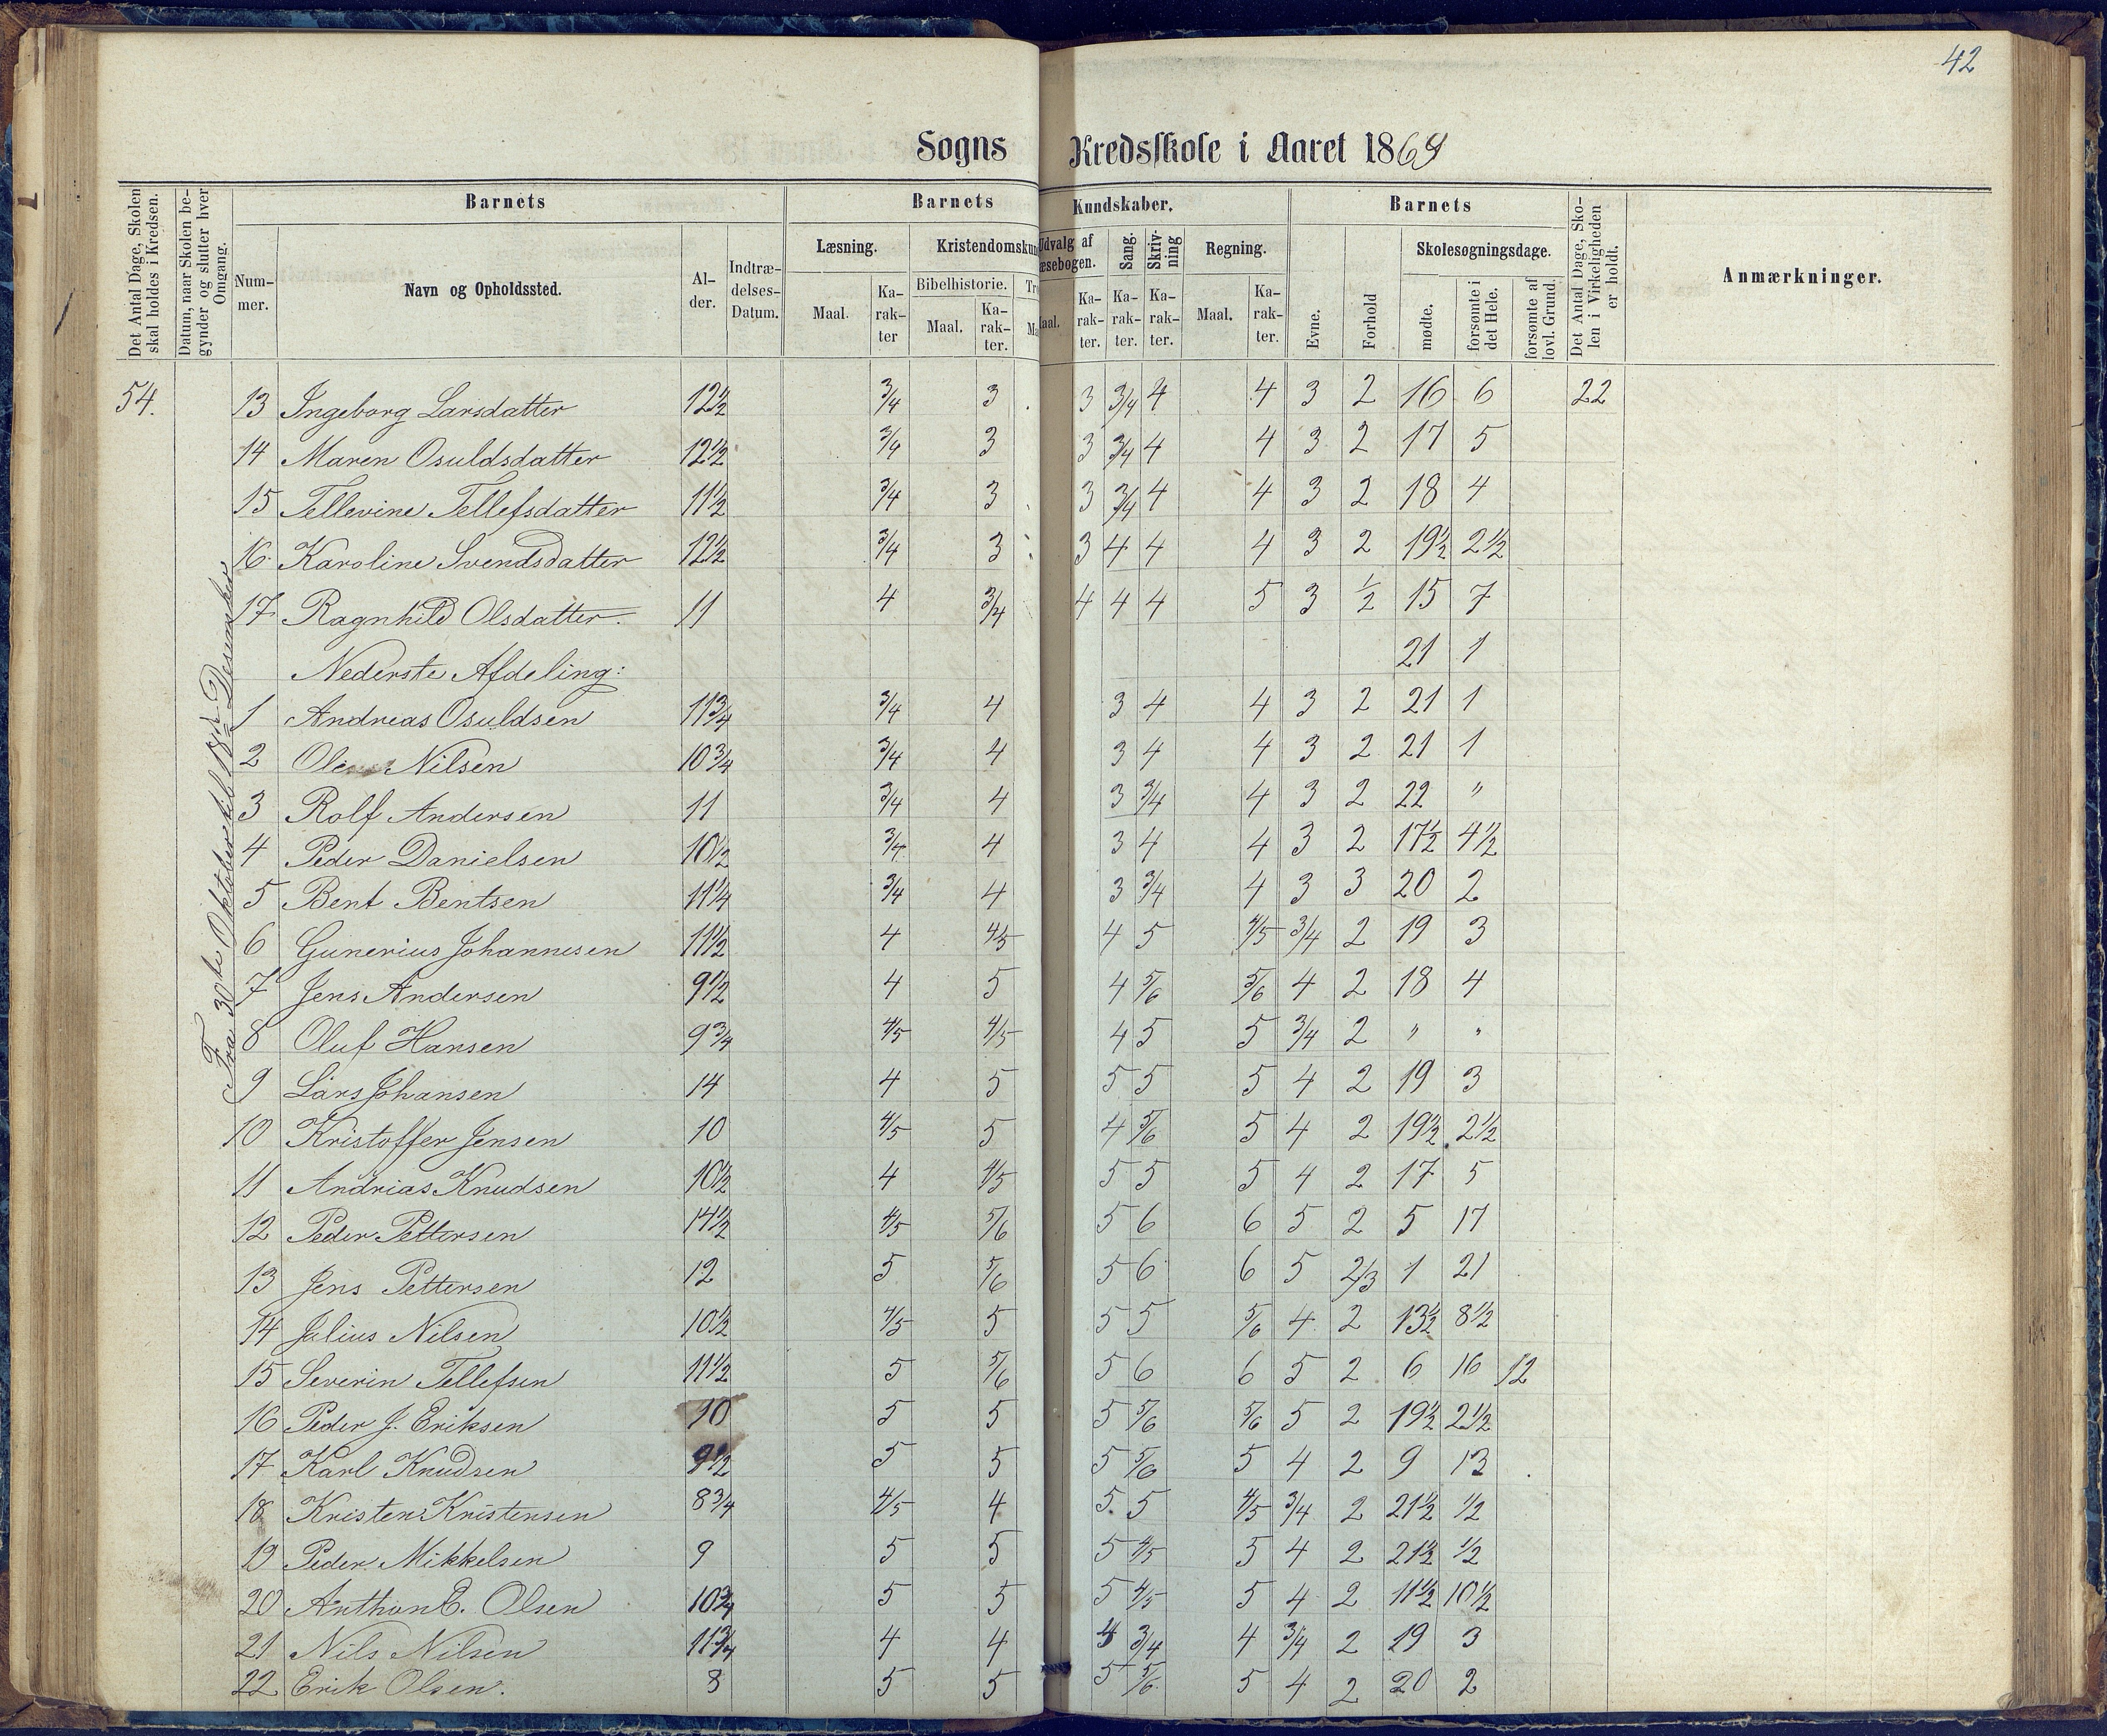 42
Sogns Kredsskole i Aaret 1869
Det Antal Dage, Skolen skal holdes i Kredsen.
Datum, naar Skolen begynder og slutter hver Omgang.
Barnets
Barnets
Kundskaber.
Barnets
Det Antal Dage, Skolen i Virkeligheden er holdt.
Anmærkninger.
Nummer.
Navn og Opholdssted.
Alder.
Indtrædelses-Datum.
Læsning.
Kristendomskun
Udvalg af
æsebogen.
Sang.
Skrivning
Regning.
Evne.
Forhold
Skolesøgningsdage.
Maal.
Karakter
Bibelhistorie.
Tro
Maal.
Karakter.
Ma
aal.
Karakter.
Karakter.
Karakter.
Maal.
Karakter.
mødte.
forsømte i det Hele.
forsømte af lovl. Grund.
Fra 30te Oktober til 18de Desember
54. 13 Ingeborg Larsdatter 12 1/2 3/4 3 3 3/4 4 4 3 2 16 6 22
14 Maren Osuldsdatter 12 1/2 3/4 3 3 3/4 4 4 3 2 17 5
15 Tellevine Tellefsdatter 11 1/2 3/4 3 3 3/4 4 4 3 2 18 4
16. Karoline Svendsdatter 12 1/2 3/4 3 3 4 4 4 3 2 19 1/2 2 1/2
17 Ragnhild Olsdatter. 11 4 3/4 4 4 4 5 3 1/2 15 7
Nederste Afdeling: 21 1
1 Andreas Osuldsen 11 3/4 3/4 4 3 4 4 3 2 21 1
2 Ole Nilsen 10 3/4 3/4 4 3 4 4 3 2 21 1
3 Rolf Andersen 11 3/4 4 3 3/4 4 3 2 22 "
4 Peder Danielsen 10 1/2 3/4 4 3 4 4 3 2 17 1/2 4 1/2
5 Bent Bentsen 11 1/4 3/4 4 3 3/4 4 3 3 20 2
6 Gunerius Johannesen 11 1/2 4 4/5 4 5 4/5 3/4 2 19 3
7 Jens Andersen 9 1/2 4 5 4 5/6 5/6 4 2 18 4
8 Oluf Hansen 9 3/4 4/5 4/5 4 5 5 3/4 2 " "
9 Lars Johansen 14 4 5 5 5 5 4 2 19 3
10 Kristoffer Jensen 10 4/5 5 4 5/6 5 4 2 19 1/2 2 1/2
11 Andrias Knudsen 10 1/2 4 4/5 5 5 5 4 2 17 5
12 Peder Pettersen 14 1/2 4/5 5/6 5 6 6 5 2 5 17
13 Jens Pettersen 12 5 5/6 5 6 6 5 2/3 1 21
14 Julius Nilsen 10 1/2 4/5 5 5 5 5/6 4 2 13 1/2 8 1/2
15 Severin Tellefsen 11 1/2 5 5/6 5 6 6 5 2 6 16 12
16 Peder J. Eriksen 10 5 5 5 5/6 5/6 5 2 19 1/2 2 1/2
17 Karl Knudsen 9 1/2 5 5 5 5/6 5 4 2 9 13
18 Kristen Kristensen 8 3/4 4/5 4 5. 5 4/5 3/4 2 21 1/2 1/2
19 Peder Mikkelsen 9 5 5 5 4/5 5 4 2 21 1/2 1/2
20 Anthon E. Olsen 10 3/4 5 5 5 4/5 5 4 2 11 1/2 10 1/2
21 Nils Nilsen 11 3/4 4 4 4 3/4 4 3/4 2 19 3
22 Erik Olsen. 8 5 5 5 5/6 5 4 2 20 2